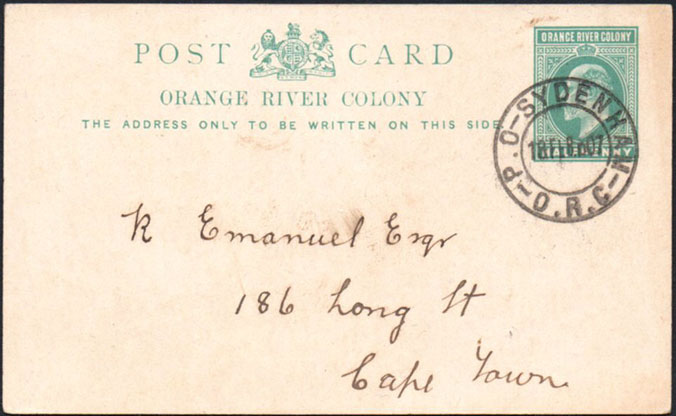 POST CARD
ORANGE RIVER COLONY
THE ADDRESS ONLY TO BE WRITTEN ON THIS SIDE
ORANGE RIVER COLONY
P.O-SYDENHAM-O.R.C-
18 FEB 07
R Emanuel Esqr
186 Long St
Cape Town